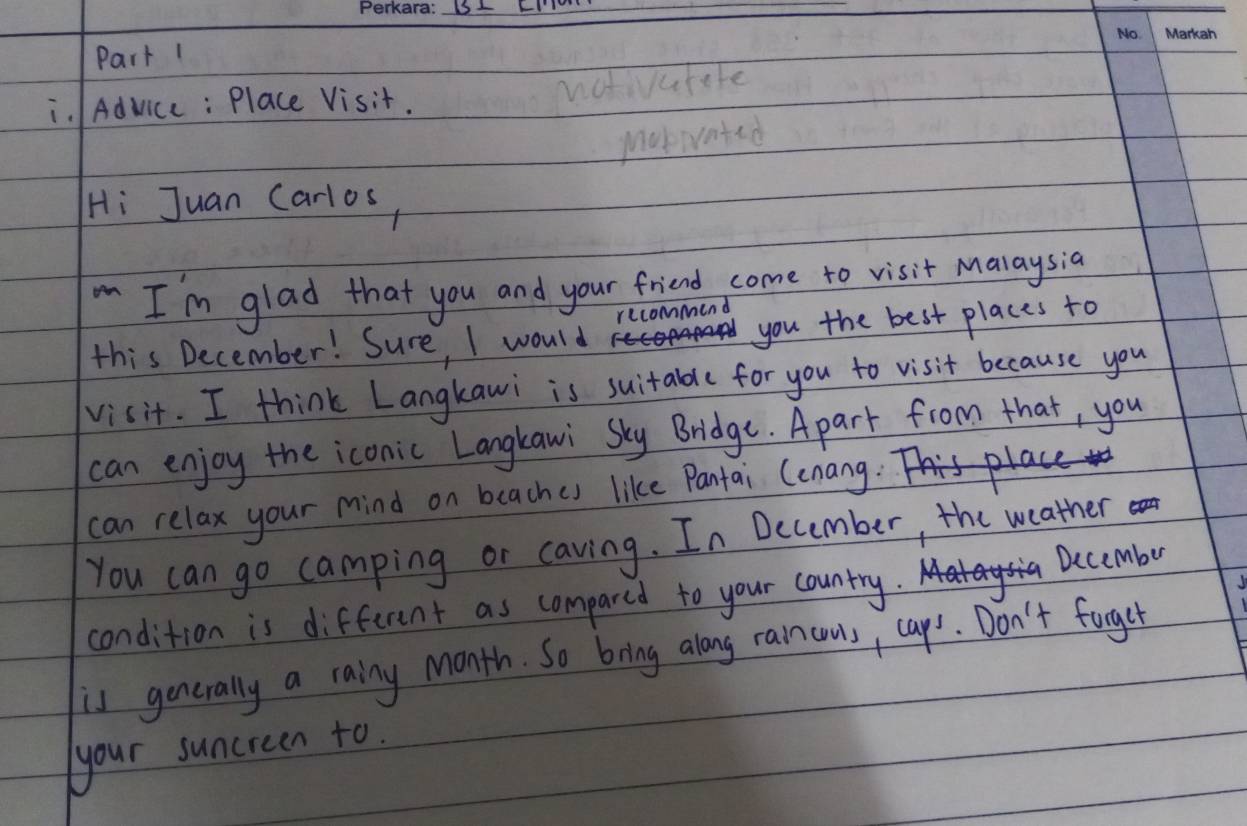 Perkara: BI
No. Markah
Part 1
i. Advice : Place Visit.
motivatete
Motivated
Hi Juan Carlos,
I'm glad that you and your friend come to visit Malaysia
this December! Sure, I would recommend you the best places to
visit. I think Langkawi is suitable for you to visit because you
can enjoy the iconic Langkawi Sky Bridge. Apart from that, you
can relax your mind on beaches like Pantai Cenang. This place
You can go camping or caving. In December, the weather
condition is different as compared to your country. Malaysia December
is generally a rainy month. So bring along raincoats, caps. Don't forget
your suncreen to.